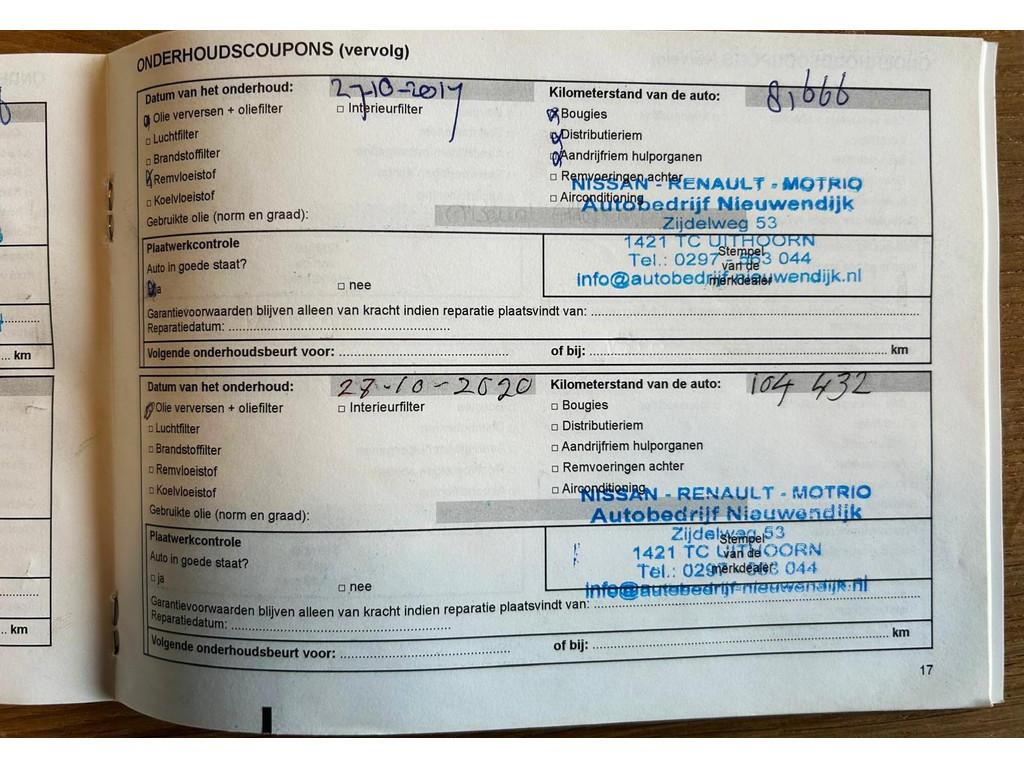 ONDERHOUDSCOUPONS (vervolg)
Datum van het onderhoud: 27-10-2017 Kilometerstand van de auto: 81,666
Olie verversen + oliefilter □ Interieurfilter Bougies
□ Luchtfilter Distributieriem
□ Brandstoffilter Aandrijfriem hulporganen
Remvloeistof □ Remvoeringen achter
□ Koelvloeistof □ Airconditioning
NISSAN - RENAULT - MOTRIO
Autobedrijf Nieuwendijk
Gebruikte olie (norm en graad):
Zijdelweg 53
Plaatwerkcontrole
1421 TC UITHOORN
Stempel
Auto in goede staat?
Tel.: 0297 - 563 044
van de
ja □ nee
info@autobedrijf-nieuwendijk.nl
merkdealer
Garantievoorwaarden blijven alleen van kracht indien reparatie plaatsvindt van:
Reparatiedatum:
Volgende onderhoudsbeurt voor: of bij: km
Datum van het onderhoud: 28-10-2020 Kilometerstand van de auto: 104 432
Olie verversen + oliefilter □ Interieurfilter □ Bougies
□ Luchtfilter □ Distributieriem
□ Brandstoffilter □ Aandrijfriem hulporganen
□ Remvloeistof □ Remvoeringen achter
□ Koelvloeistof □ Airconditioning
NISSAN - RENAULT - MOTRIO
Gebruikte olie (norm en graad):
Autobedrijf Nieuwendijk
Plaatwerkcontrole
Zijdelweg 53
Stempel
Auto in goede staat?
1421 TC UITHOORN
van de
□ ja □ nee
Tel.: 0297 - 563 044
merkdealer
info@autobedrijf-nieuwendijk.nl
Garantievoorwaarden blijven alleen van kracht indien reparatie plaatsvindt van:
Reparatiedatum:
Volgende onderhoudsbeurt voor: of bij: km
17
km
km